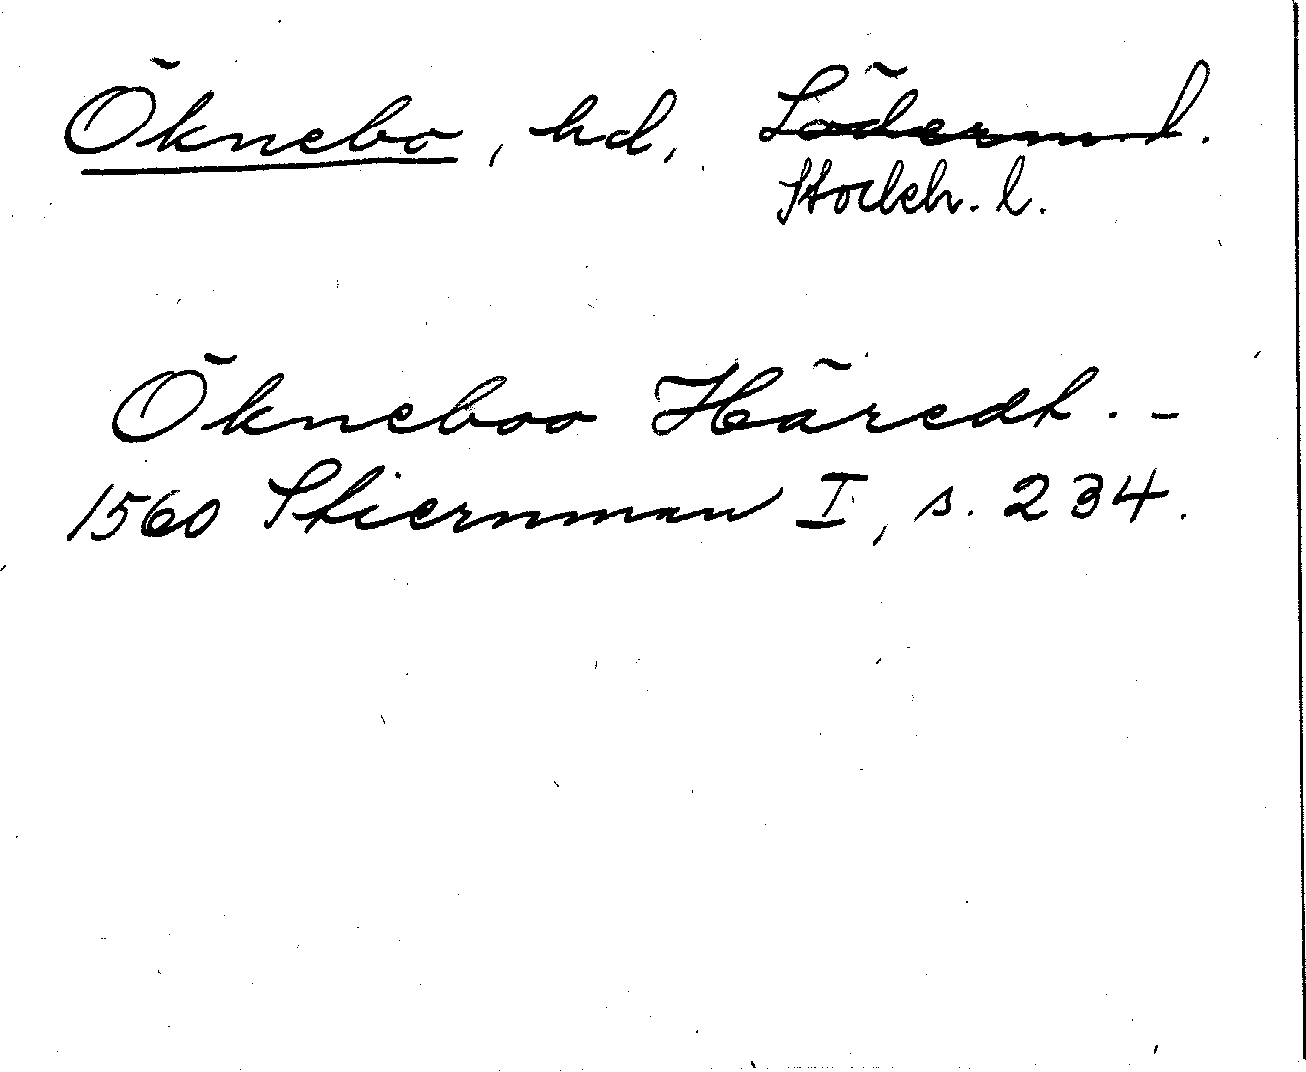 Öknebo, hd, Söderm l.
Stockh. l.
Ökneboo Häredt. -
1560 Stiernman I, s. 234.